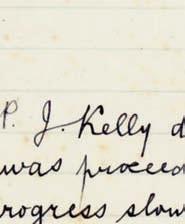 P. J. Kelly d
was proceed
rogress slow